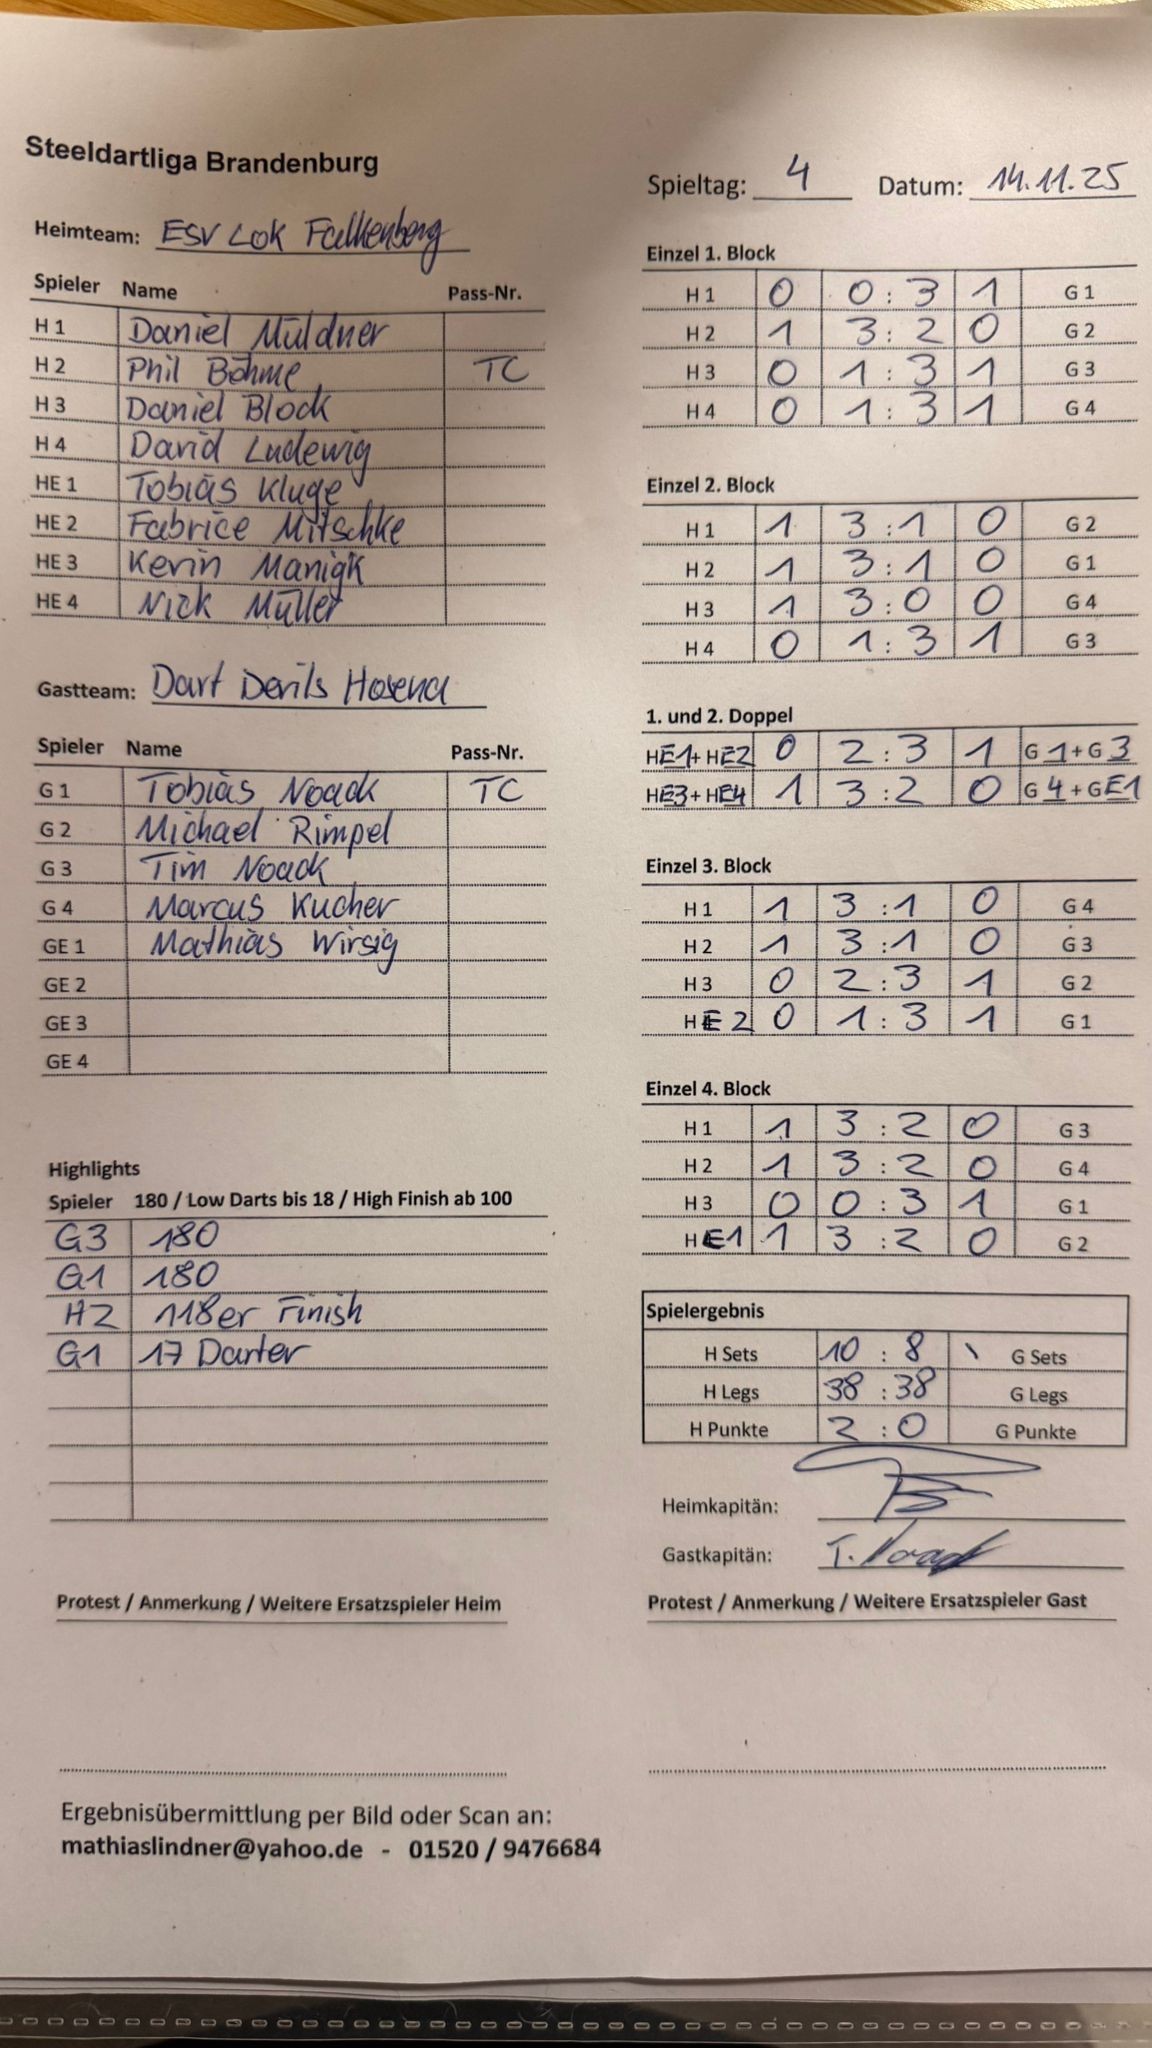 Steeldartliga Brandenburg
Spieltag: 4 Datum: 14.11.25
Heimteam: ESV Lok Falkenberg
Spieler Name Pass-Nr.
H 1 Daniel Müldner
H 2 Phil Böhme TC
H 3 Daniel Block
H 4 David Ludewig
HE 1 Tobias Kluge
HE 2 Fabrice Mitschke
HE 3 Kevin Manigk
HE 4 Nick Müller
Gastteam: Dart Devils Hosena
Spieler Name Pass-Nr.
G 1 Tobias Noack TC
G 2 Michael Rimpel
G 3 Tim Noack
G 4 Marcus Kucher
GE 1 Mathias Wirsig
GE 2
GE 3
GE 4
Highlights
Spieler 180 / Low Darts bis 18 / High Finish ab 100
G3 180
G1 180
H2 118er Finish
G1 17 Darter
Protest / Anmerkung / Weitere Ersatzspieler Heim
Einzel 1. Block
H 1 0 0 : 3 1 G 1
H 2 1 3 : 2 0 G 2
H 3 0 1 : 3 1 G 3
H 4 0 1 : 3 1 G 4
Einzel 2. Block
H 1 1 3 : 1 0 G 2
H 2 1 3 : 1 0 G 1
H 3 1 3 : 0 0 G 4
H 4 0 1 : 3 1 G 3
1. und 2. Doppel
HE1+ HE2 0 2 : 3 1 G 1 + G 3
HE3 + HE4 1 3 : 2 0 G 4 + GE1
Einzel 3. Block
H 1 1 3 : 1 0 G 4
H 2 1 3 : 1 0 G 3
H 3 0 2 : 3 1 G 2
HE 2 0 1 : 3 1 G 1
Einzel 4. Block
H 1 1 3 : 2 0 G 3
H 2 1 3 : 2 0 G 4
H 3 0 0 : 3 1 G 1
HE1 1 3 : 2 0 G 2
Spielergebnis
H Sets 10 : 8 G Sets
H Legs 38 : 38 G Legs
H Punkte 2 : 0 G Punkte
Heimkapitän:
Gastkapitän: T. Noack
Protest / Anmerkung / Weitere Ersatzspieler Gast
Ergebnisübermittlung per Bild oder Scan an:
mathiaslindner@yahoo.de - 01520 / 9476684